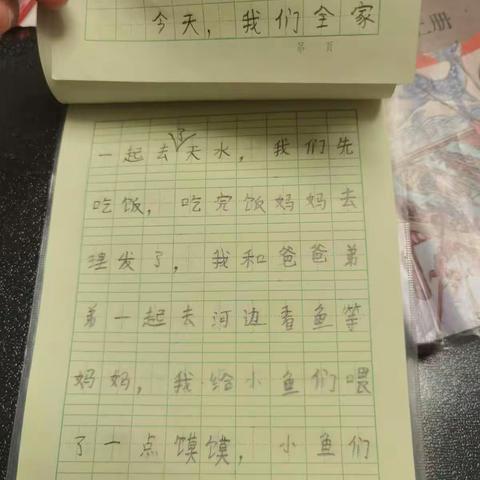 今天，我们全家
第 页
一起去了天水，我们先
吃饭，吃完饭妈妈去
理发了，我和爸爸弟
弟一起去河边看鱼等
妈妈，我给小鱼们喂
了一点馍馍，小鱼们
上册